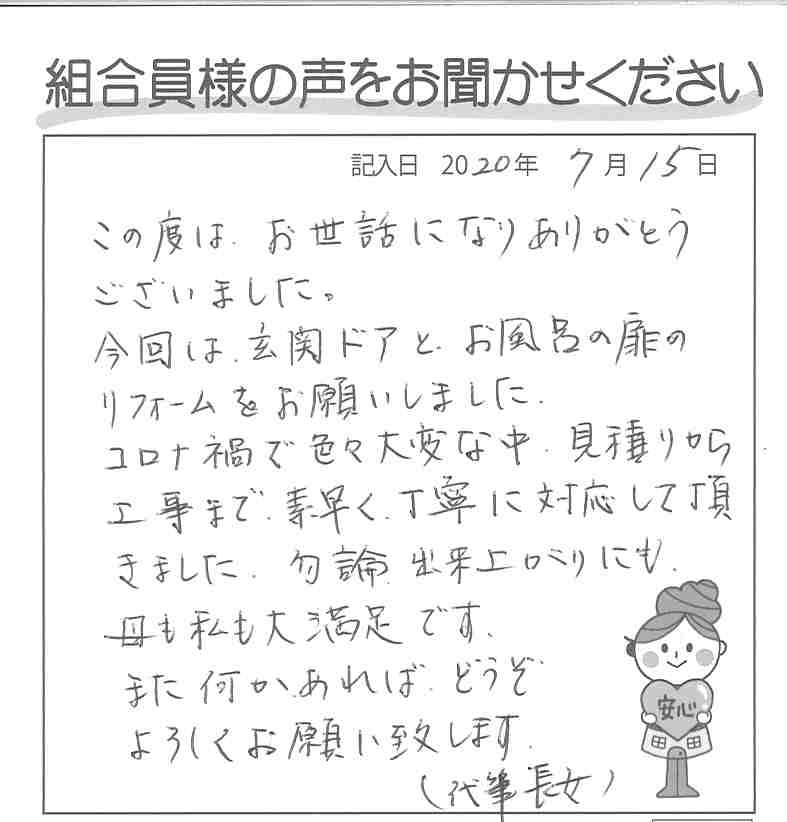 組合員様の声をお聞かせください
記入日 2020年 7月15日
この度は、お世話になりありがとう
ございました。
今回は、玄関ドアと、お風呂の扉の
リフォームをお願いしました。
コロナ禍で色々大変な中、見積りから
工事まで、素早く、丁寧に対応して頂
きました。勿論、出来上がりにも、
母も私も大満足です。
また何かあれば、どうぞ
よろしくお願い致します。
(代筆長女)
安心